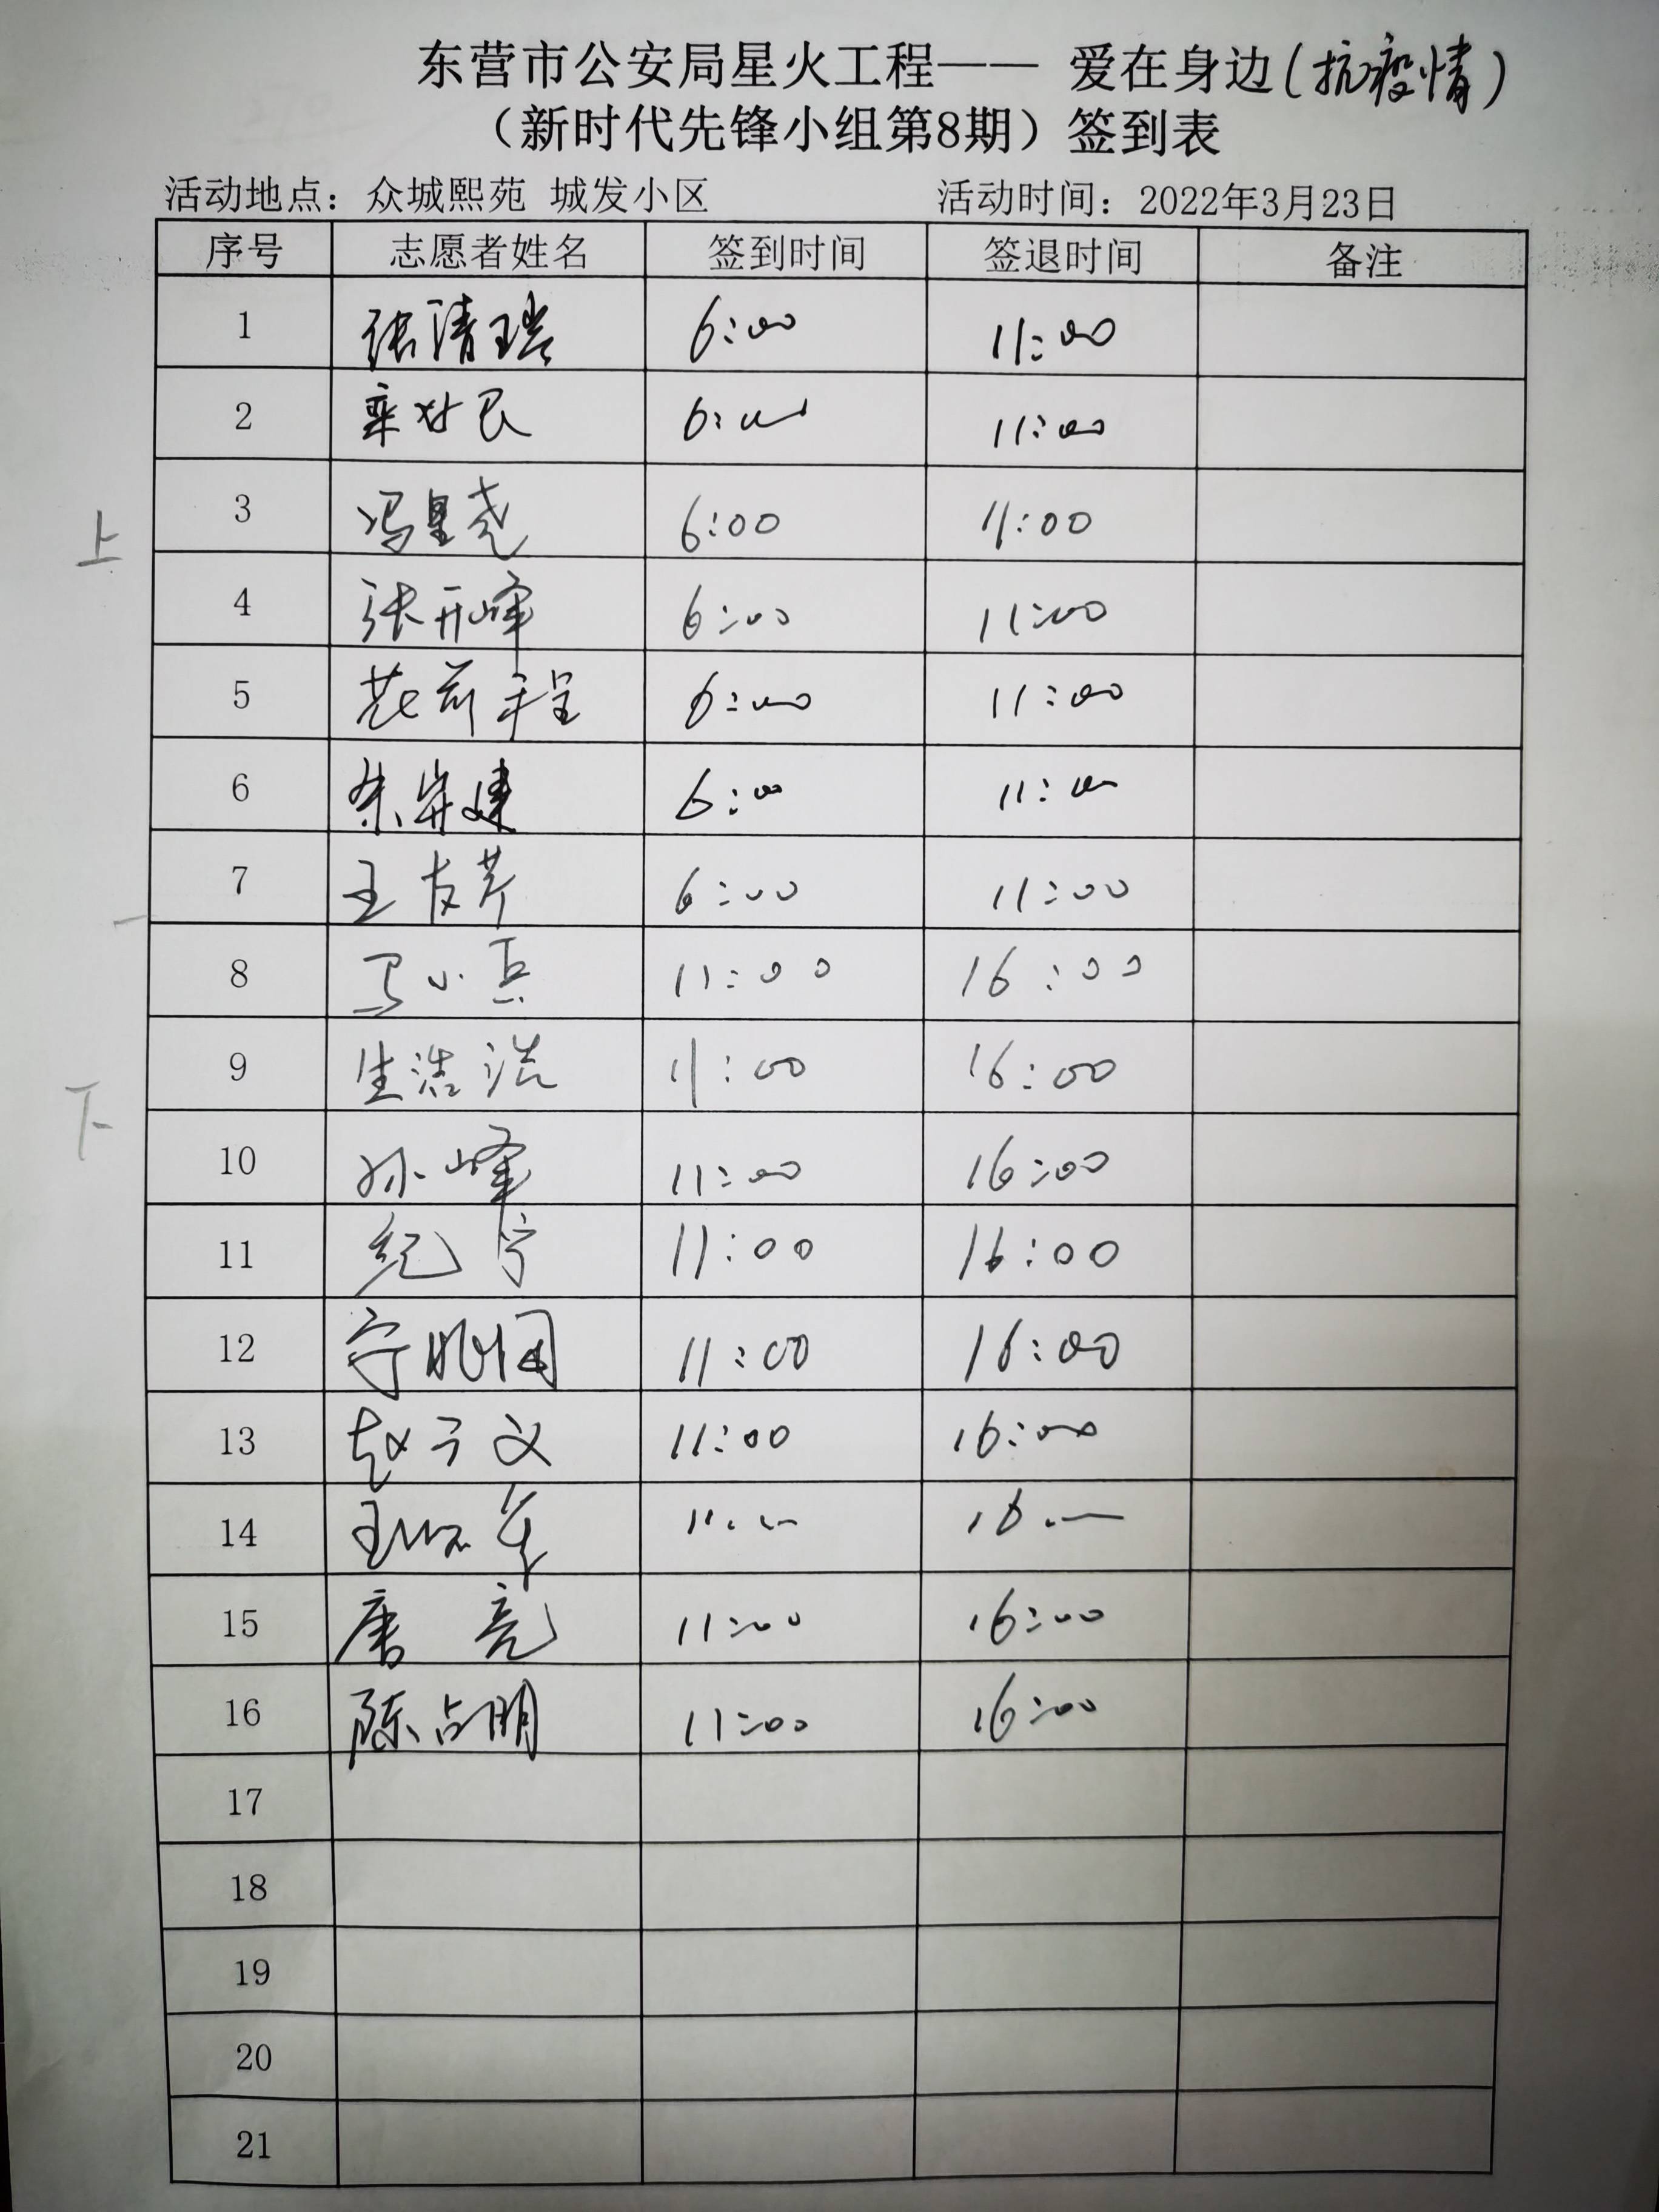 东营市公安局星火工程—— 爱在身边(抗疫情)
(新时代先锋小组第8期)签到表
活动地点：众城熙苑 城发小区 活动时间：2022年3月23日
序号 志愿者姓名 签到时间 签退时间 备注
1 张清瑞 6:00 11:00
2 6:00 11:00
上
3 冯星尧 6:00 11:00
4 张开峰 6:00 11:00
5 花前程 6:00 11:00
6 6:00 11:00
7 王友芹 6:00 11:00
8 马小兵 11:00 16:00
9 生浩浩 11:00 16:00
下
10 孙峰 11:00 16:00
11 纪宁 11:00 16:00
12 11:00 16:00
13 赵子文 11:00 16:00
14
15 唐亮 11:00 16:00
16 陈占明 11:00 16:00
17
18
19
20
21